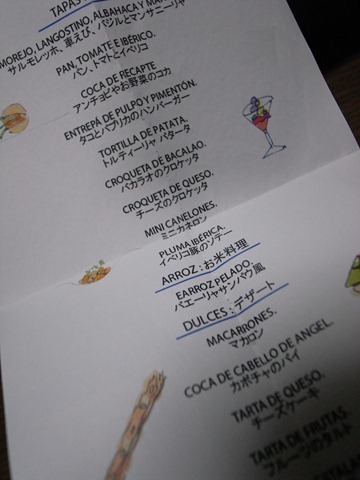 TAPAS
MOREJO, LANGOSTINO, ALBAHACA Y
サルモレッホ、車えび、バジルとマンサニーリャ
PAN, TOMATE E IBÉRICO.
パン、トマトとイベリコ
COCA DE RECAPTE
アンチョビやお野菜のコカ
ENTREPÀ DE PULPO Y PIMENTÓN.
タコとパプリカのハンバーガー
TORTILLA DE PATATA.
トルティーリャ パタータ
CROQUETA DE BACALAO.
バカラオのクロケッタ
CROQUETA DE QUESO.
チーズのクロケッタ
MINI CANELONES.
ミニカネロン
PLUMA IBÉRICA.
イベリコ豚のソテー
ARROZ : お米料理
EARROZ PELADO.
パエーリャサンパウ風
DULCES : デザート
MACARRONES.
マカロン
COCA DE CABELLO DE ANGEL.
カボチャのパイ
TARTA DE QUESO.
チーズケーキ
TARTA DE FRUTAS
フルーツのタルト
ATALA